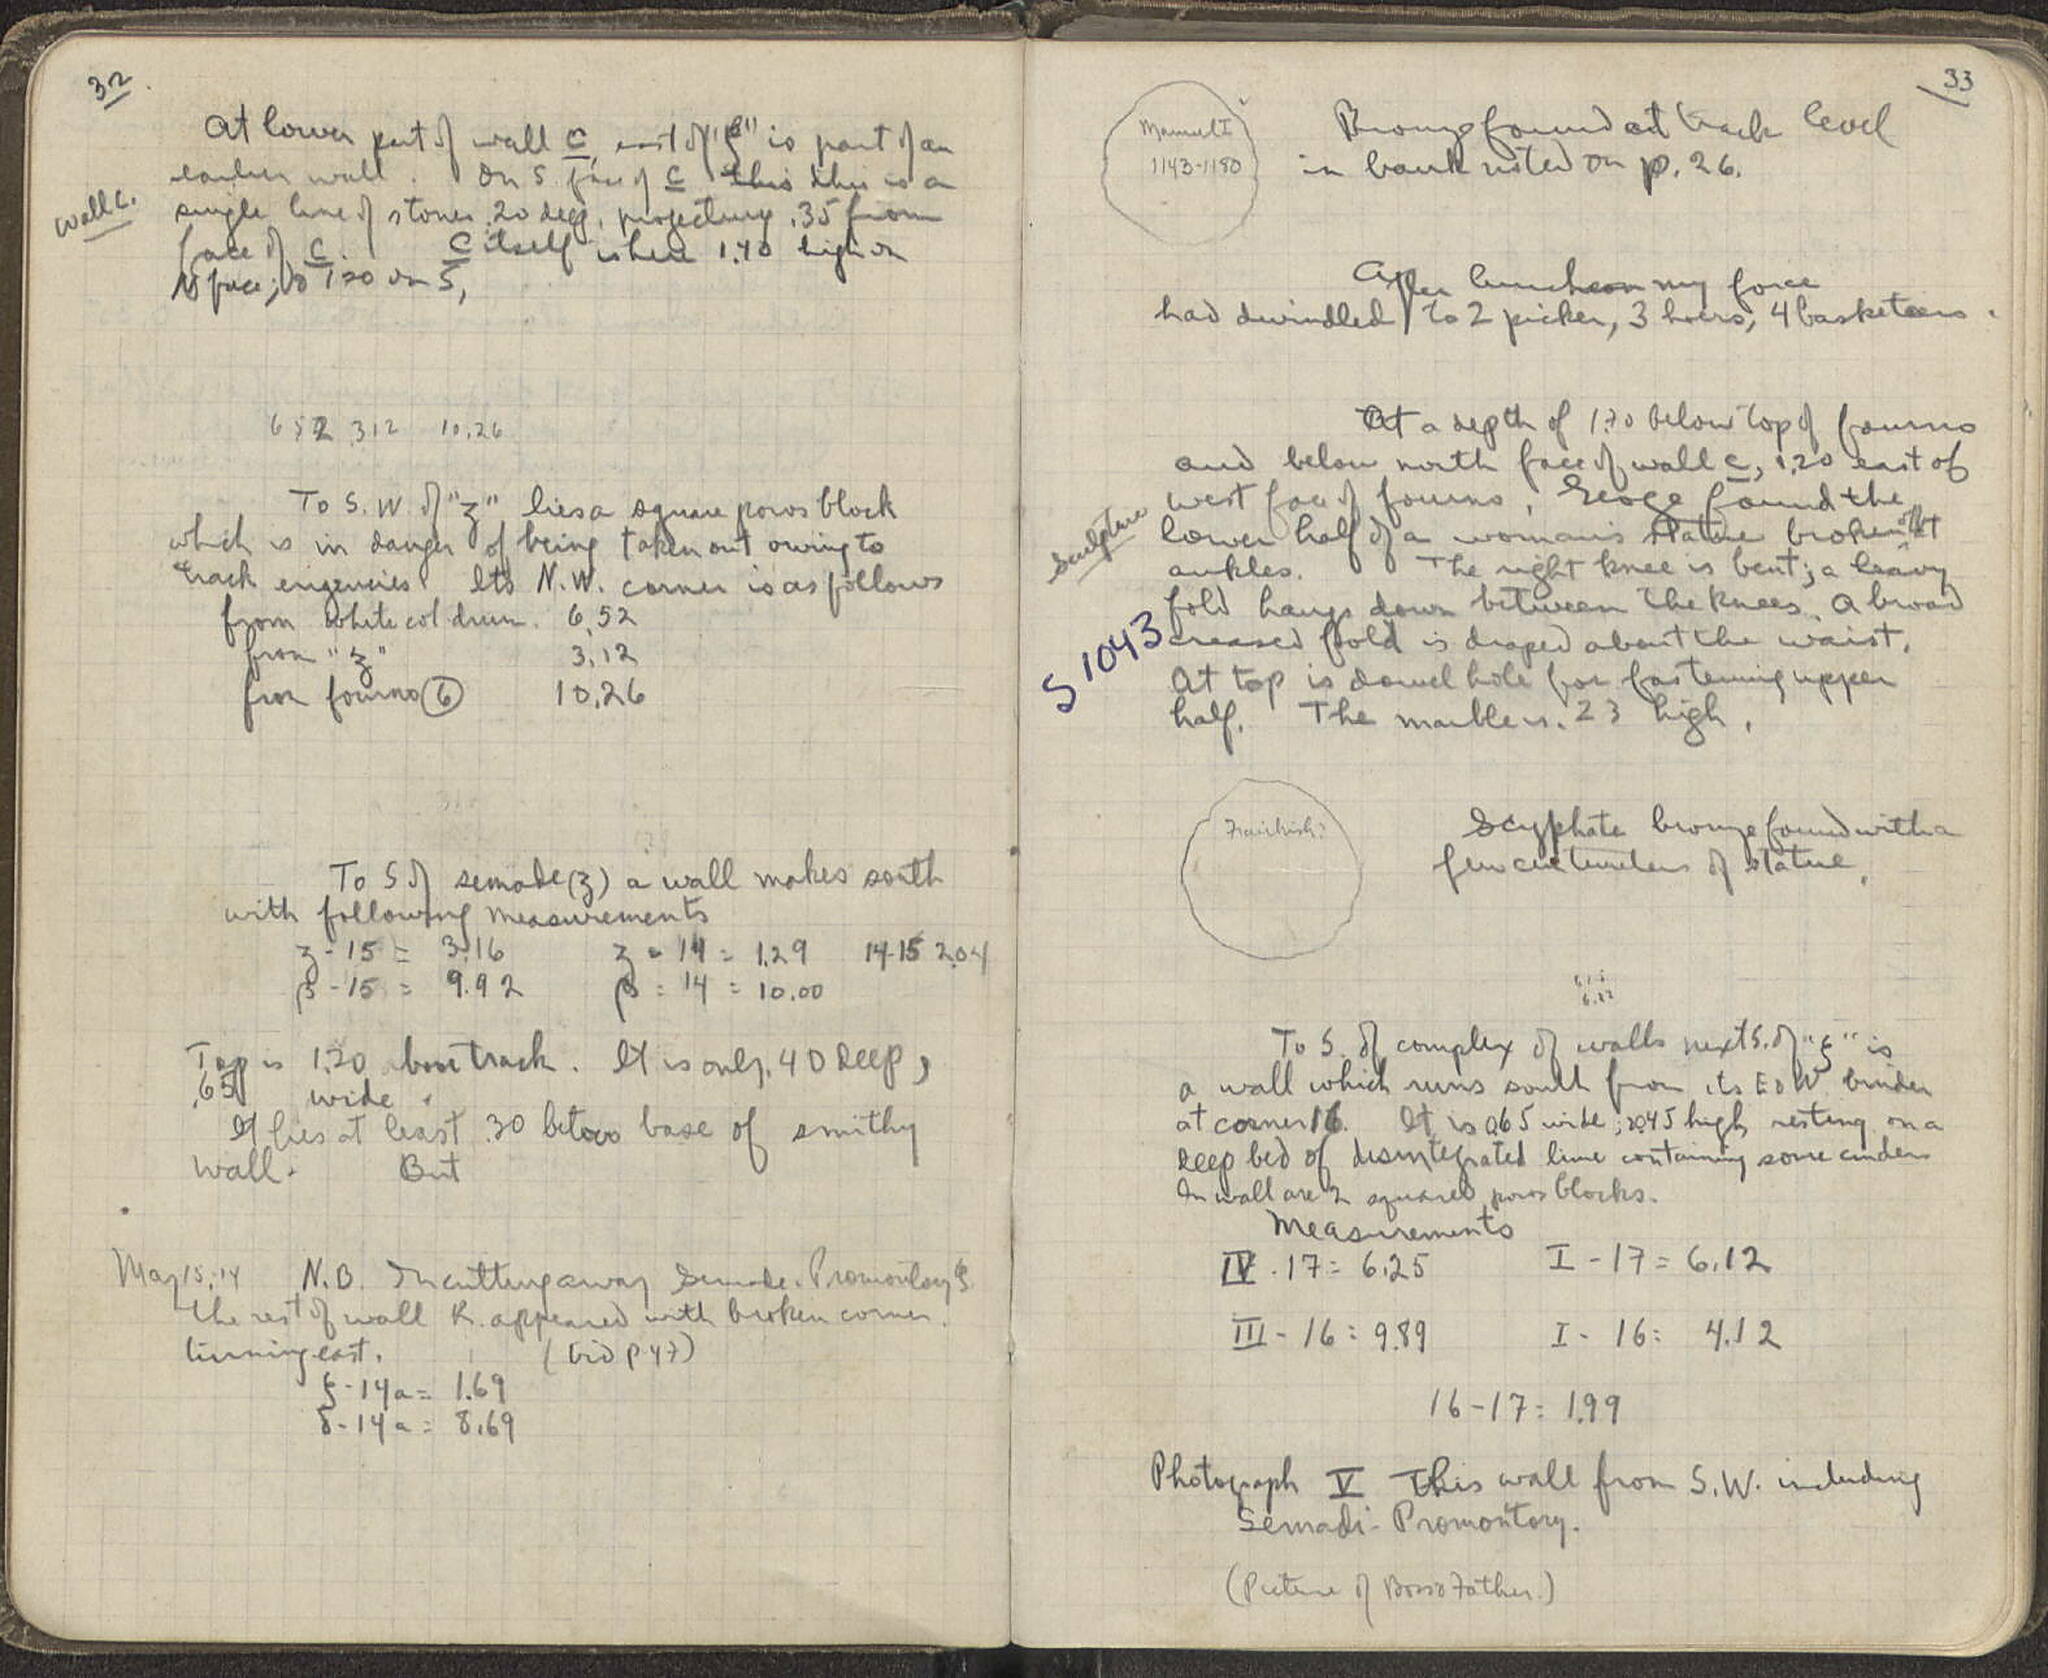 32
At lower part of wall C, east of "ξ" is part of an
earlier wall. On S face of C this this is a
Wall C.
single line of stones .20 deep, projecting .35 from
face of C. C itself is here 1.40 high on
N face; is 1.20 on S,
652 312 10.26
To S.W. of "ξ" lies a square poros block
which is in danger of being taken out owing to
track exigencies. Its N.W. corner is as follows
from white col drum. 6,52
from "ξ" 3,12
from fourno 6 10,26
To S of semade (ξ) a wall makes south
with following measurements
ξ-15 = 3.16 ξ-14 = 1.29 14-15 2.04
β-15 = 9.92 β-14 = 10.00
Top is 1.20 above track. It is only .40 deep,
.65 wide.
It lies at least .30 below base of smithy
wall. But
May 15, 14 N.B. In cutting away Semade-Promontory ξ
the rest of wall K appeared with broken corner
turning east. (vid p 47)
ξ-14a = 1.69
δ-14a = 8.69
33
Manuel I
1143-1180
Bronze found at track level
in bank noted on p. 26.
After luncheon my force
had dwindled to 2 picker, 3 hoers, 4 basketeers.
At a depth of 1.70 below top of fourno
and below north face of wall C, 1.20 east of
west face of fourno, George found the
Sculpture
lower half of a woman's statue broken off at
ankles. The right knee is bent; a heavy
fold hangs down between the knees. A broad
S 1043
creased fold is draped about the waist.
At top is dowel hole for fastening upper
half. The marble is .23 high.
Scyphate bronze found within a
few centimeters of statue.
6.12
To S. of complex of walls next S. of "ξ" is
a wall which runs south from its E & W binder
at corner 16. It is 0.65 wide; .45 high resting on a
deep bed of disintegrated lime containing some cinders
In wall are 2 squared poros blocks.
Measurements
IV - 17 = 6.25 I - 17 = 6.12
III - 16 = 9.89 I - 16 = 4.12
16-17 = 1.99
Photograph V This wall from S.W. including
Semadi-Promontory.
(Picture of Boss' Father.)